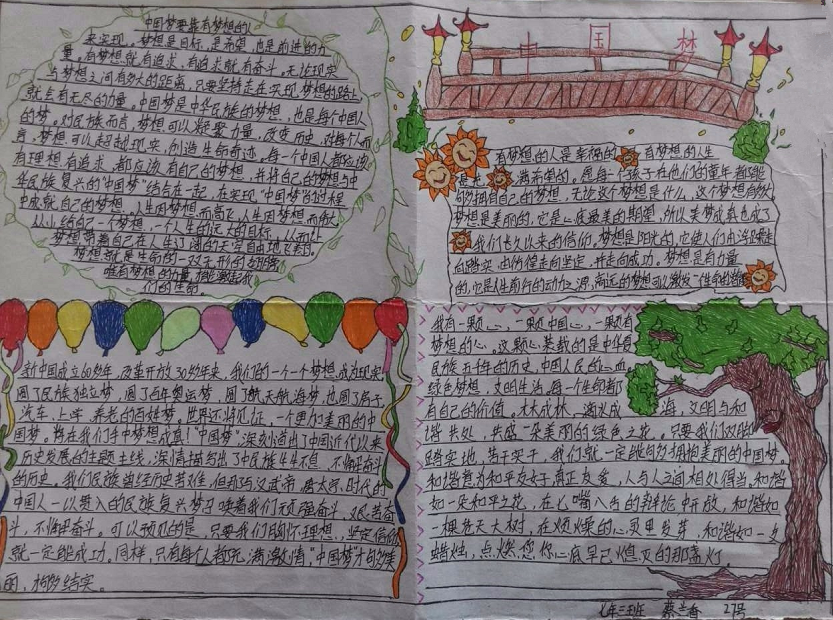 中国梦要靠有梦想的人
来实现。梦想是目标,是希望,也是前进的力
量。有梦想就有追求,有追求就有奋斗。无论现实
与梦想之间有多大的距离,只要坚持走在实现梦想的路上,
就点有无尽的力量。中国梦是中华民族的梦想,也是每个中国人
的梦。对民族而言,梦想可以凝聚力量,改变历史,对每个人而
言,梦想可以超越现实,创造生命奇迹。每一个中国人都应该
有理想有追求,都应该有自己的梦想,并将自己的梦想与中
华民族复兴的“中国梦”结合在一起,在实现“中国梦”的过程
中成就自己的梦想。人生因梦想而高飞,人生因梦想而
从小给自己一个梦想,一个人生的远大的目标,从而让
梦想带着自己在人生辽阔的天空自由地飞翔。
梦想就是生命的一双无形的翅膀
唯有梦想的力量,才能激起我
们的生命。
中国梦
有梦想的人是幸福的,有梦想的人生
是充满希望的。愿每一个孩子在他们的童年都能
够拥有自己的梦想,无论这个梦想是什么,这个梦想有多大
梦想是美丽的,它是心底最美的期望,所以美梦成真也成了
我们长久以来的信仰。梦想是阳光的,它使人们由浮躁走
向踏实,由彷徨走向坚定,并走向成功。梦想是有力量
的,它是人生前行的动力之源,高远的梦想可以激发一个生命的潜能
新中国成立60多年,改革开放30多年来,我们的一个一个梦想成为现实
圆了民族独立梦,圆了百年奥运梦,圆了航天航海梦,也圆了房子
汽车、上学、养老的百姓梦,世界还将见证,一个更加美丽的中
国梦。将在我们手中梦想成真!“中国梦”,深刻道出了中国近代以来
历史发展的主题主线,深情描绘出了中民族生生不息、不懈奋斗
的历史。我们民族曾经历苦难,但却与汉武帝、唐太宗时代的
中国人一以贯入的民族复兴梦召唤着我们顽强奋斗、艰苦奋
斗,不懈奋斗。可以预见的是,只要我们胸怀理想、坚定信念
就一定能成功。同样,只有每个人都充满激情,“中国梦”才的多美
丽,才够多结实。
我有一颗心,一颗中国心,一颗有
梦想的心。这颗心装载的是中华
民族五千年的历史,中国人民的心血
绿色梦想,文明生活,每一个生命都
有自己的价值。木木成林,滴水成海,文明与和
谐共处,共盛一朵美丽的绿色之花。只要我们双脚
踏实地,苦干实干,我们就一定能自多拥抱美丽的中国梦
和谐意为和平友好于真正友爱,人与人之间相处得当。和谐
如一朵和平之花,在七嘴八舌的辩论中开放,和谐如
一棵苍天大树,在烦燥的心灵里发芽,和谐如一支
蜡烛,点燃您你心底早已熄灭的那盏灯。
七年三班 蔡兰香 27号